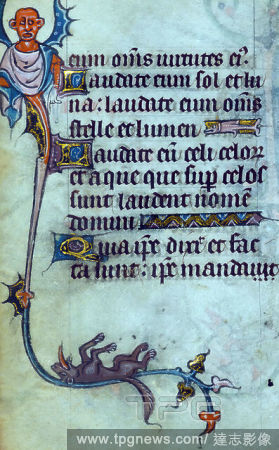 eum om̅s uirtutes eiꝰ.
Laudate eum sol et lu
na: laudate eum om̅s
stelle et lumen
Laudate eu̅ celi celoꝝ
et aque que sup̅ celos
sunt laudent nome̅
domini
Quia ip̅e dixit et fac
ta sunt: ip̅e mandauit
TPG
www.tpgnews.com/達志影像